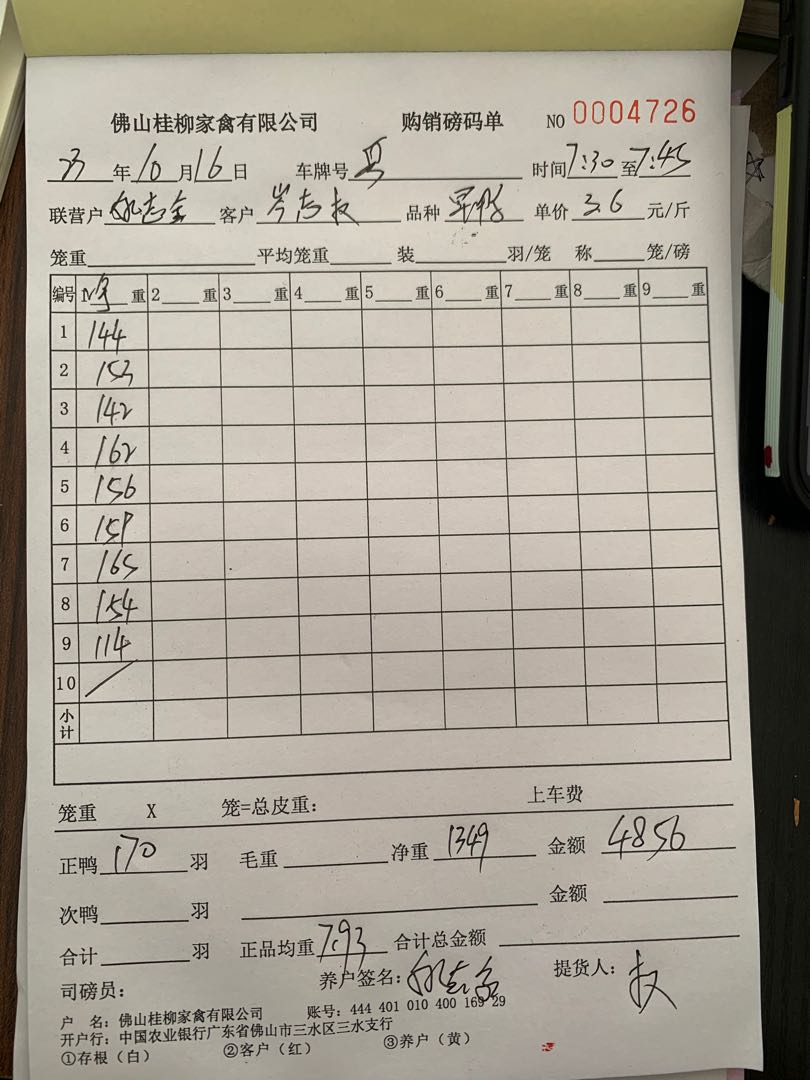 佛山桂柳家禽有限公司 购销磅码单 NO 0004726
年10月16日 车牌号 时间7:30至7:45
联营户 客户岑志权 品种 单价3.6元/斤
笼重 平均笼重 装 羽/笼 称 笼/磅
编号 1 净 重 2 重 3 重 4 重 5 重 6 重 7 重 8 重 9 重
1 144
2 153
3 142
4 162
5 156
6 159
7 165
8 154
9 114
10 /
小计
笼重 X 笼=总皮重: 上车费
正鸭170羽 毛重 净重1349 金额4856
次鸭 羽 金额
合计 羽 正品均重7.93 合计总金额
司磅员: 养户签名: 提货人:权
户 名:佛山桂柳家禽有限公司 账号:444 401 010 400 169 29
开户行:中国农业银行广东省佛山市三水区三水支行
①存根(白) ②客户(红) ③养户(黄)